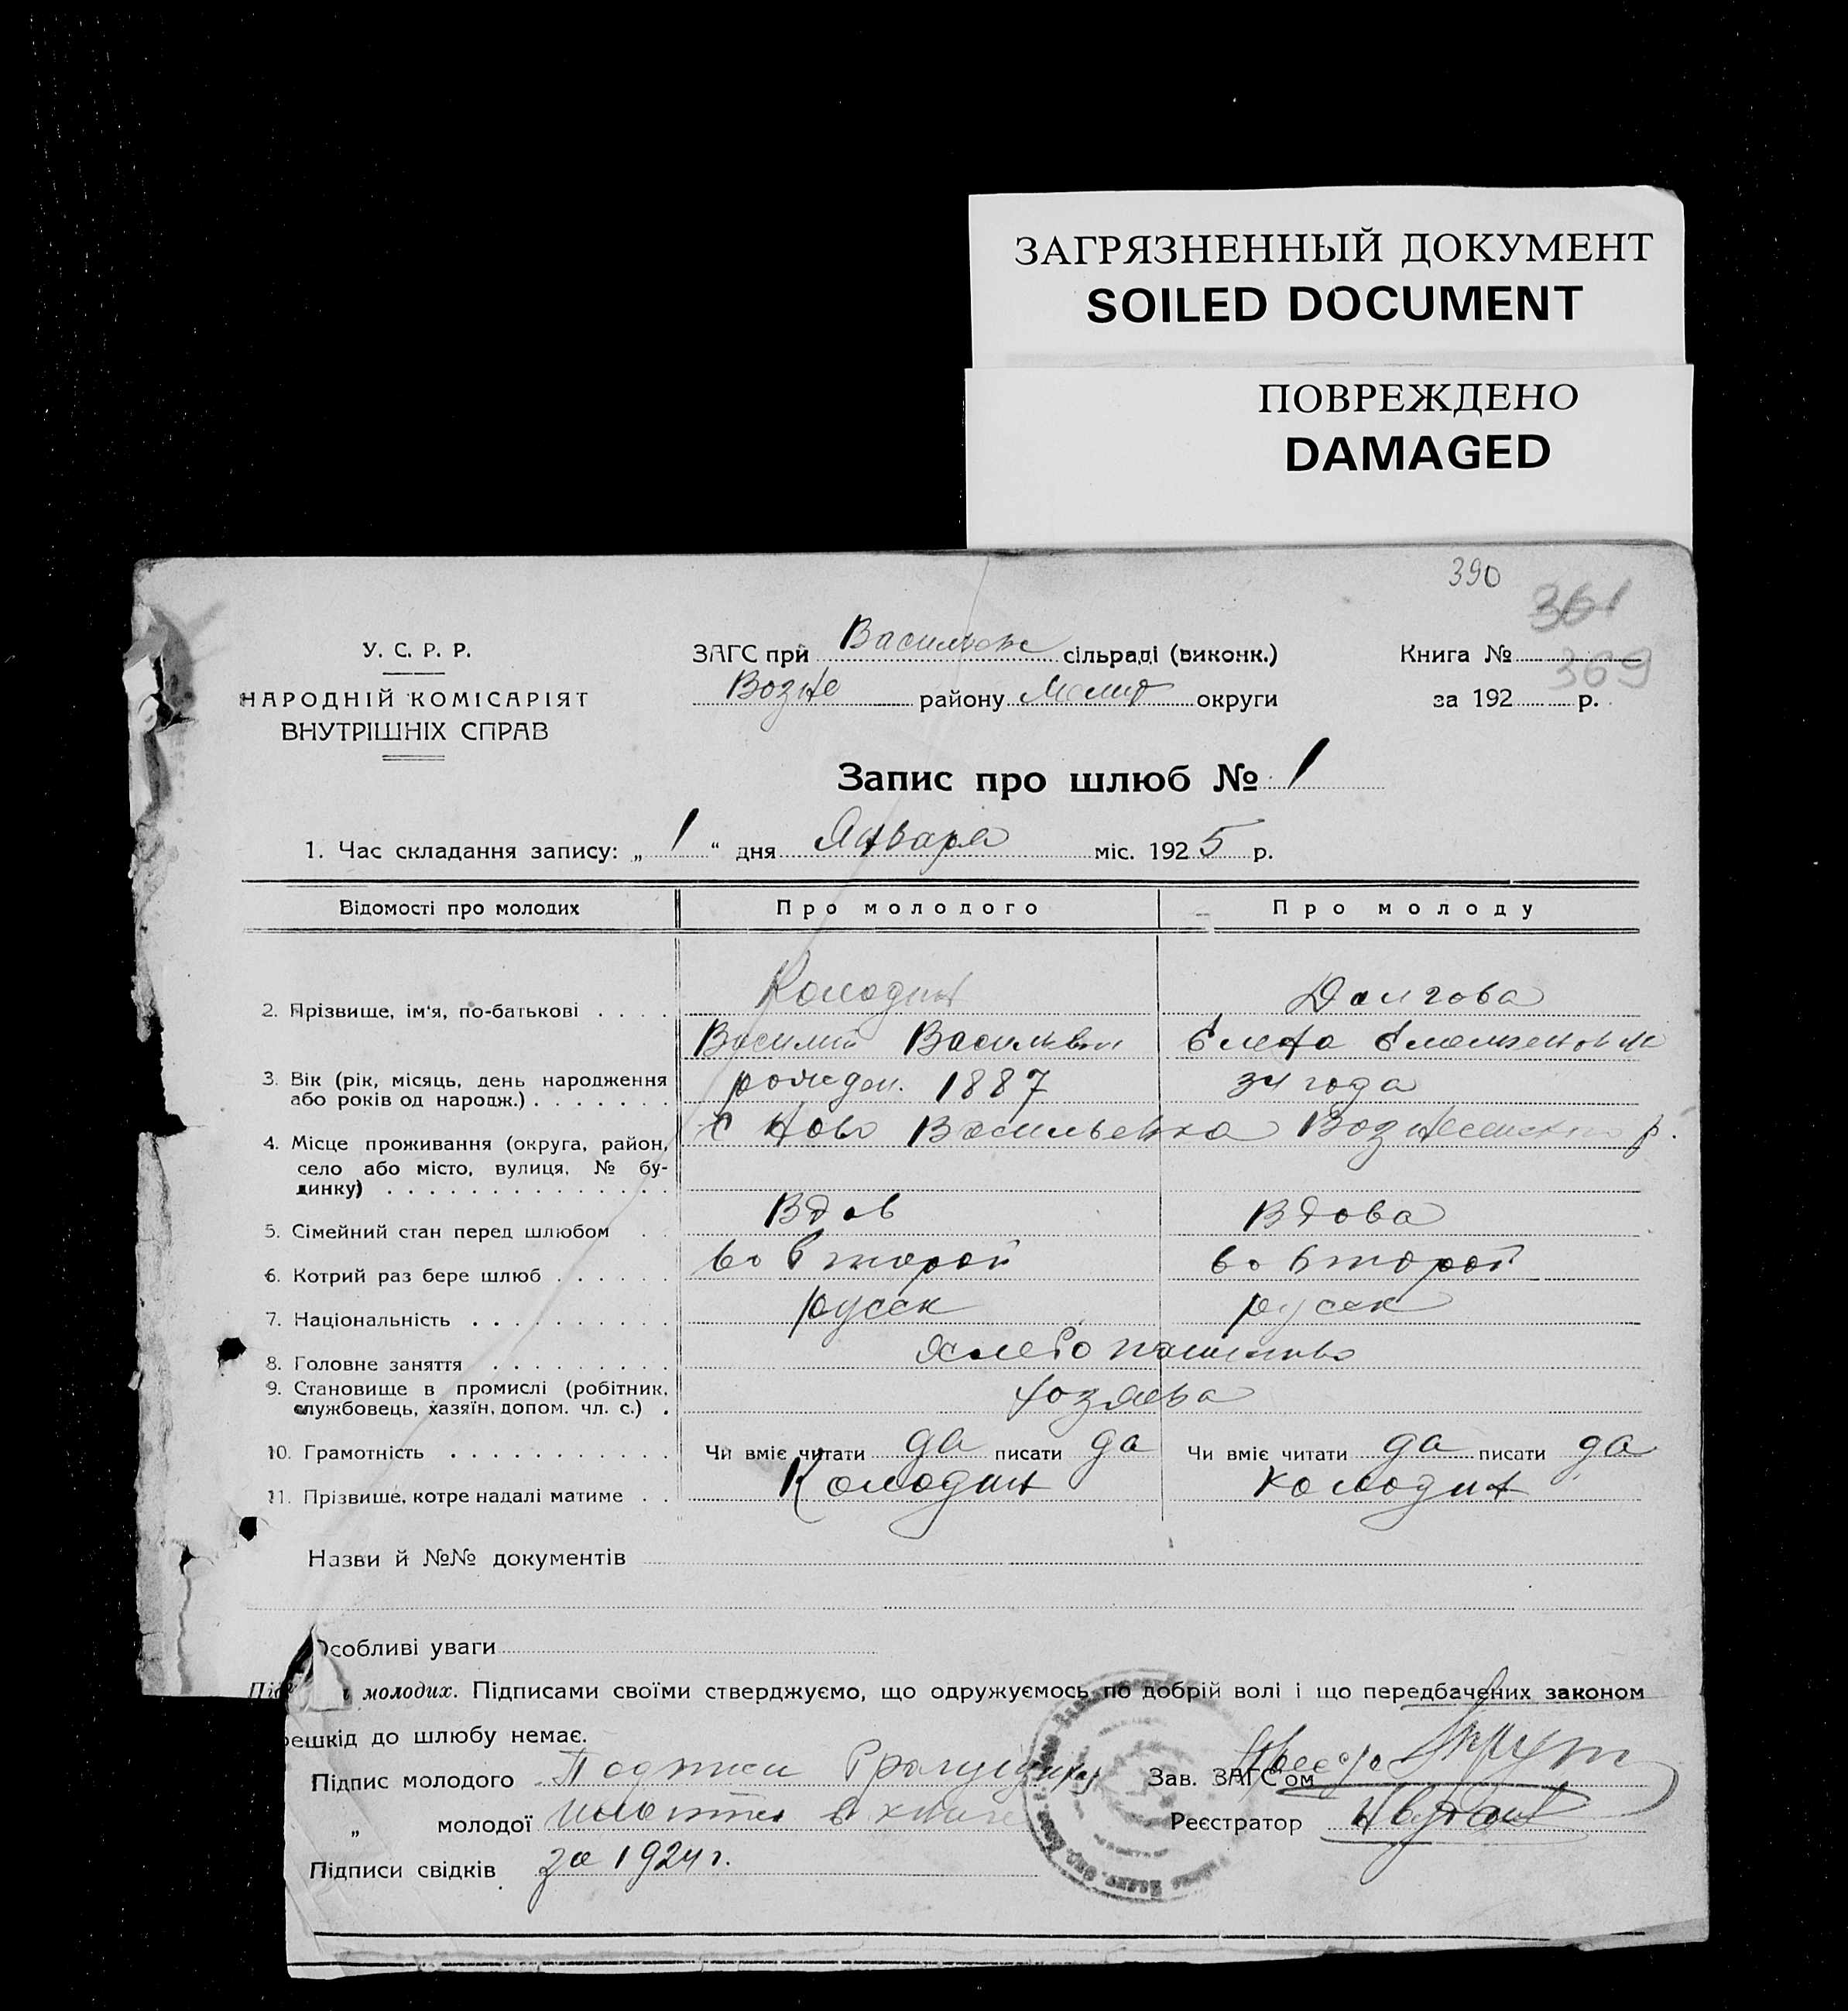 ЗАГРЯЗНЕННЫЙ ДОКУМЕНТ
SOILED DOCUMENT
ПОВРЕЖДЕНО
DAMAGED
390
361
369
У. С. Р. Р.
НАРОДНІЙ КОМІСАРІЯТ
ВНУТРІШНІХ СПРАВ
ЗАГС при сільраді (виконк.)
Возне району округи
Книга №
за 192 р.
Запис про шлюб № 1
1. Час складання запису: „ 1 “ дня Января міс. 1925 р.
Відомості про молодих Про молодого Про молоду
2. Прізвище, ім'я, по-батькові . . . . Колодин Долгова
Василий Васильевич Елена
3. Вік (рік, місяць, день народження або років од народж.) . . . . . . . рожден. 1887 34 года
4. Місце проживання (округа, район, село або місто, вулиця, № будинку) . . . . . . . . . . . . . . с Ново Васильевка Вознесенского р.
5. Сімейний стан перед шлюбом . . Вдов Вдова
6. Котрий раз бере шлюб . . . . . . во второй во второй
7. Національність . . . . . . . . . . русск русск
8. Головне заняття . . . . . . . . .
9. Становище в промислі (робітник, службовець, хазяїн, допом. чл. с.) . хозяева
10. Грамотність . . . . . . . . . . . Чи вміє читати да писати да Чи вміє читати да писати да
11. Прізвище, котре надалі матиме . . Колодин Колодин
Назви й №№ документів
Особливі уваги
молодих. Підписами своїми стверджуємо, що одружуємось по добрій волі і що передбачених законом
решкід до шлюбу немає.
Підпис молодого Подписи Зав. ЗАГС'ом
„ молодої в книге Реєстратор
Підписи свідків за 1924 г.